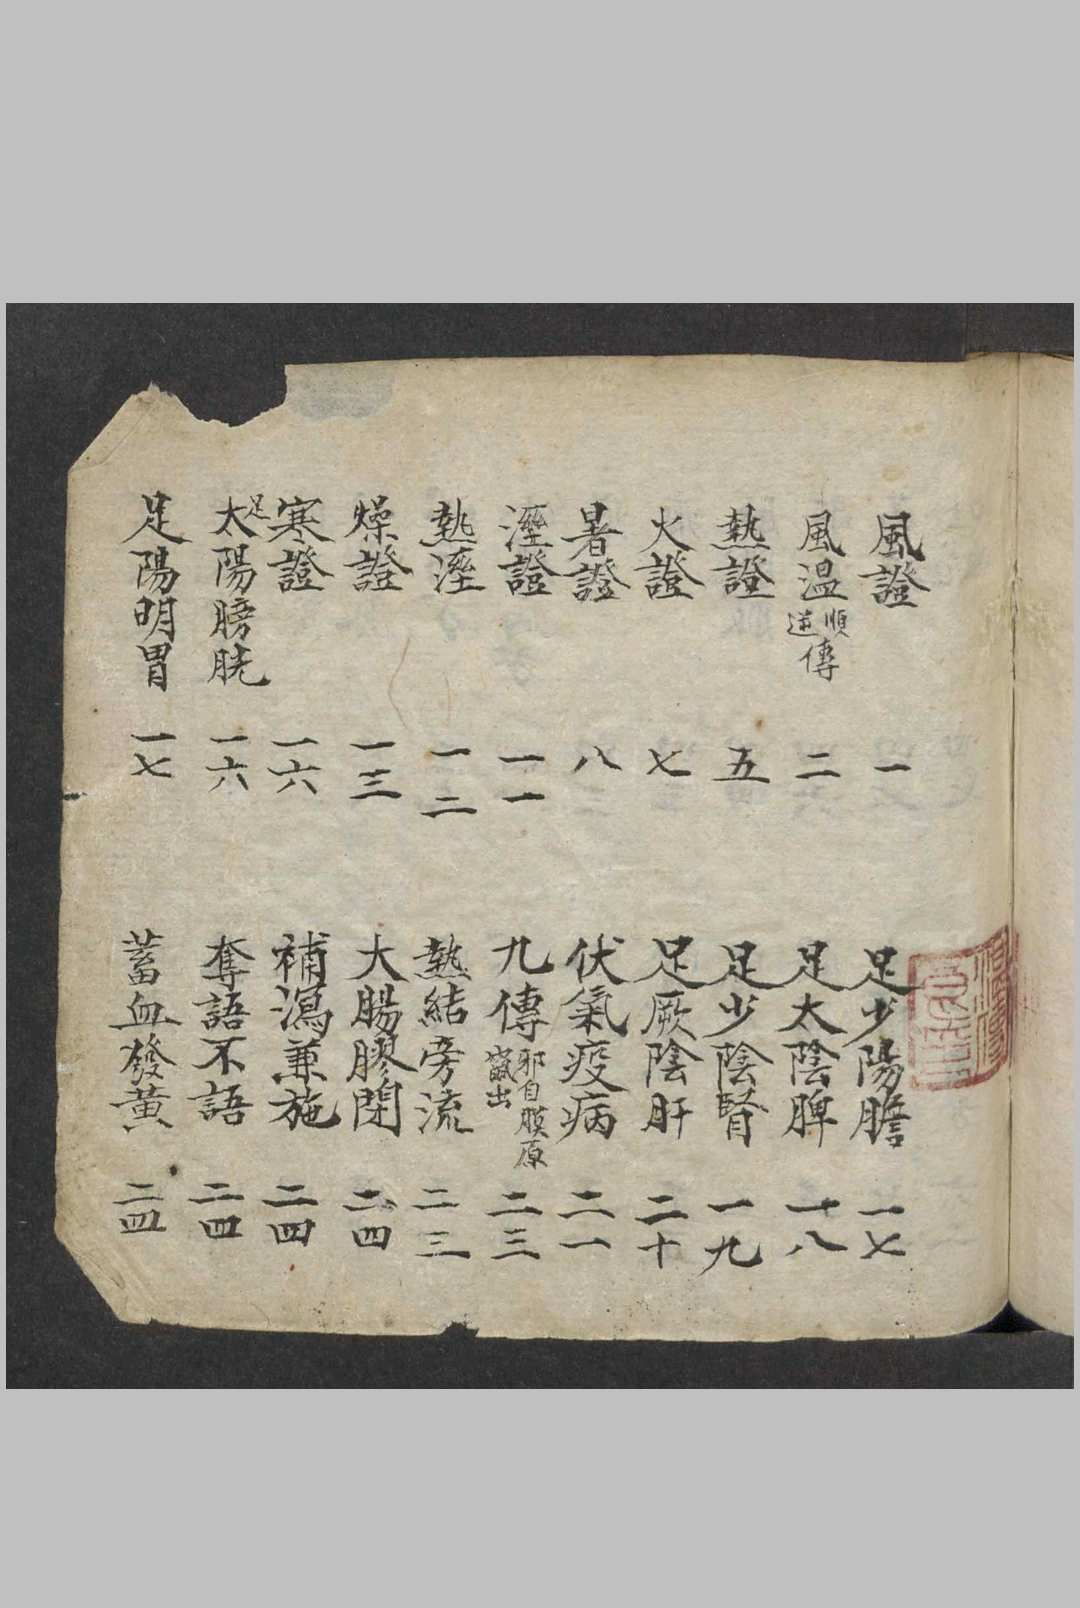 風證 一
風温 順傳 逆傳 二
熱證 五
火證 七
暑證 八
溼證 一一
熱溼 一二
燥證 一三
寒證 一六
足太陽膀胱 一六
足陽明胃 一七
足少陽膽 一七
足太陰脾 十八
足少陰腎 一九
足厥陰肝 二十
伏氣疫病 二一
九傳 邪自膜原 出 二三
熱結旁流 二三
大腸膠閉 二四
補瀉兼施 二四
奪語不語 二四
蓄血發黃 二四